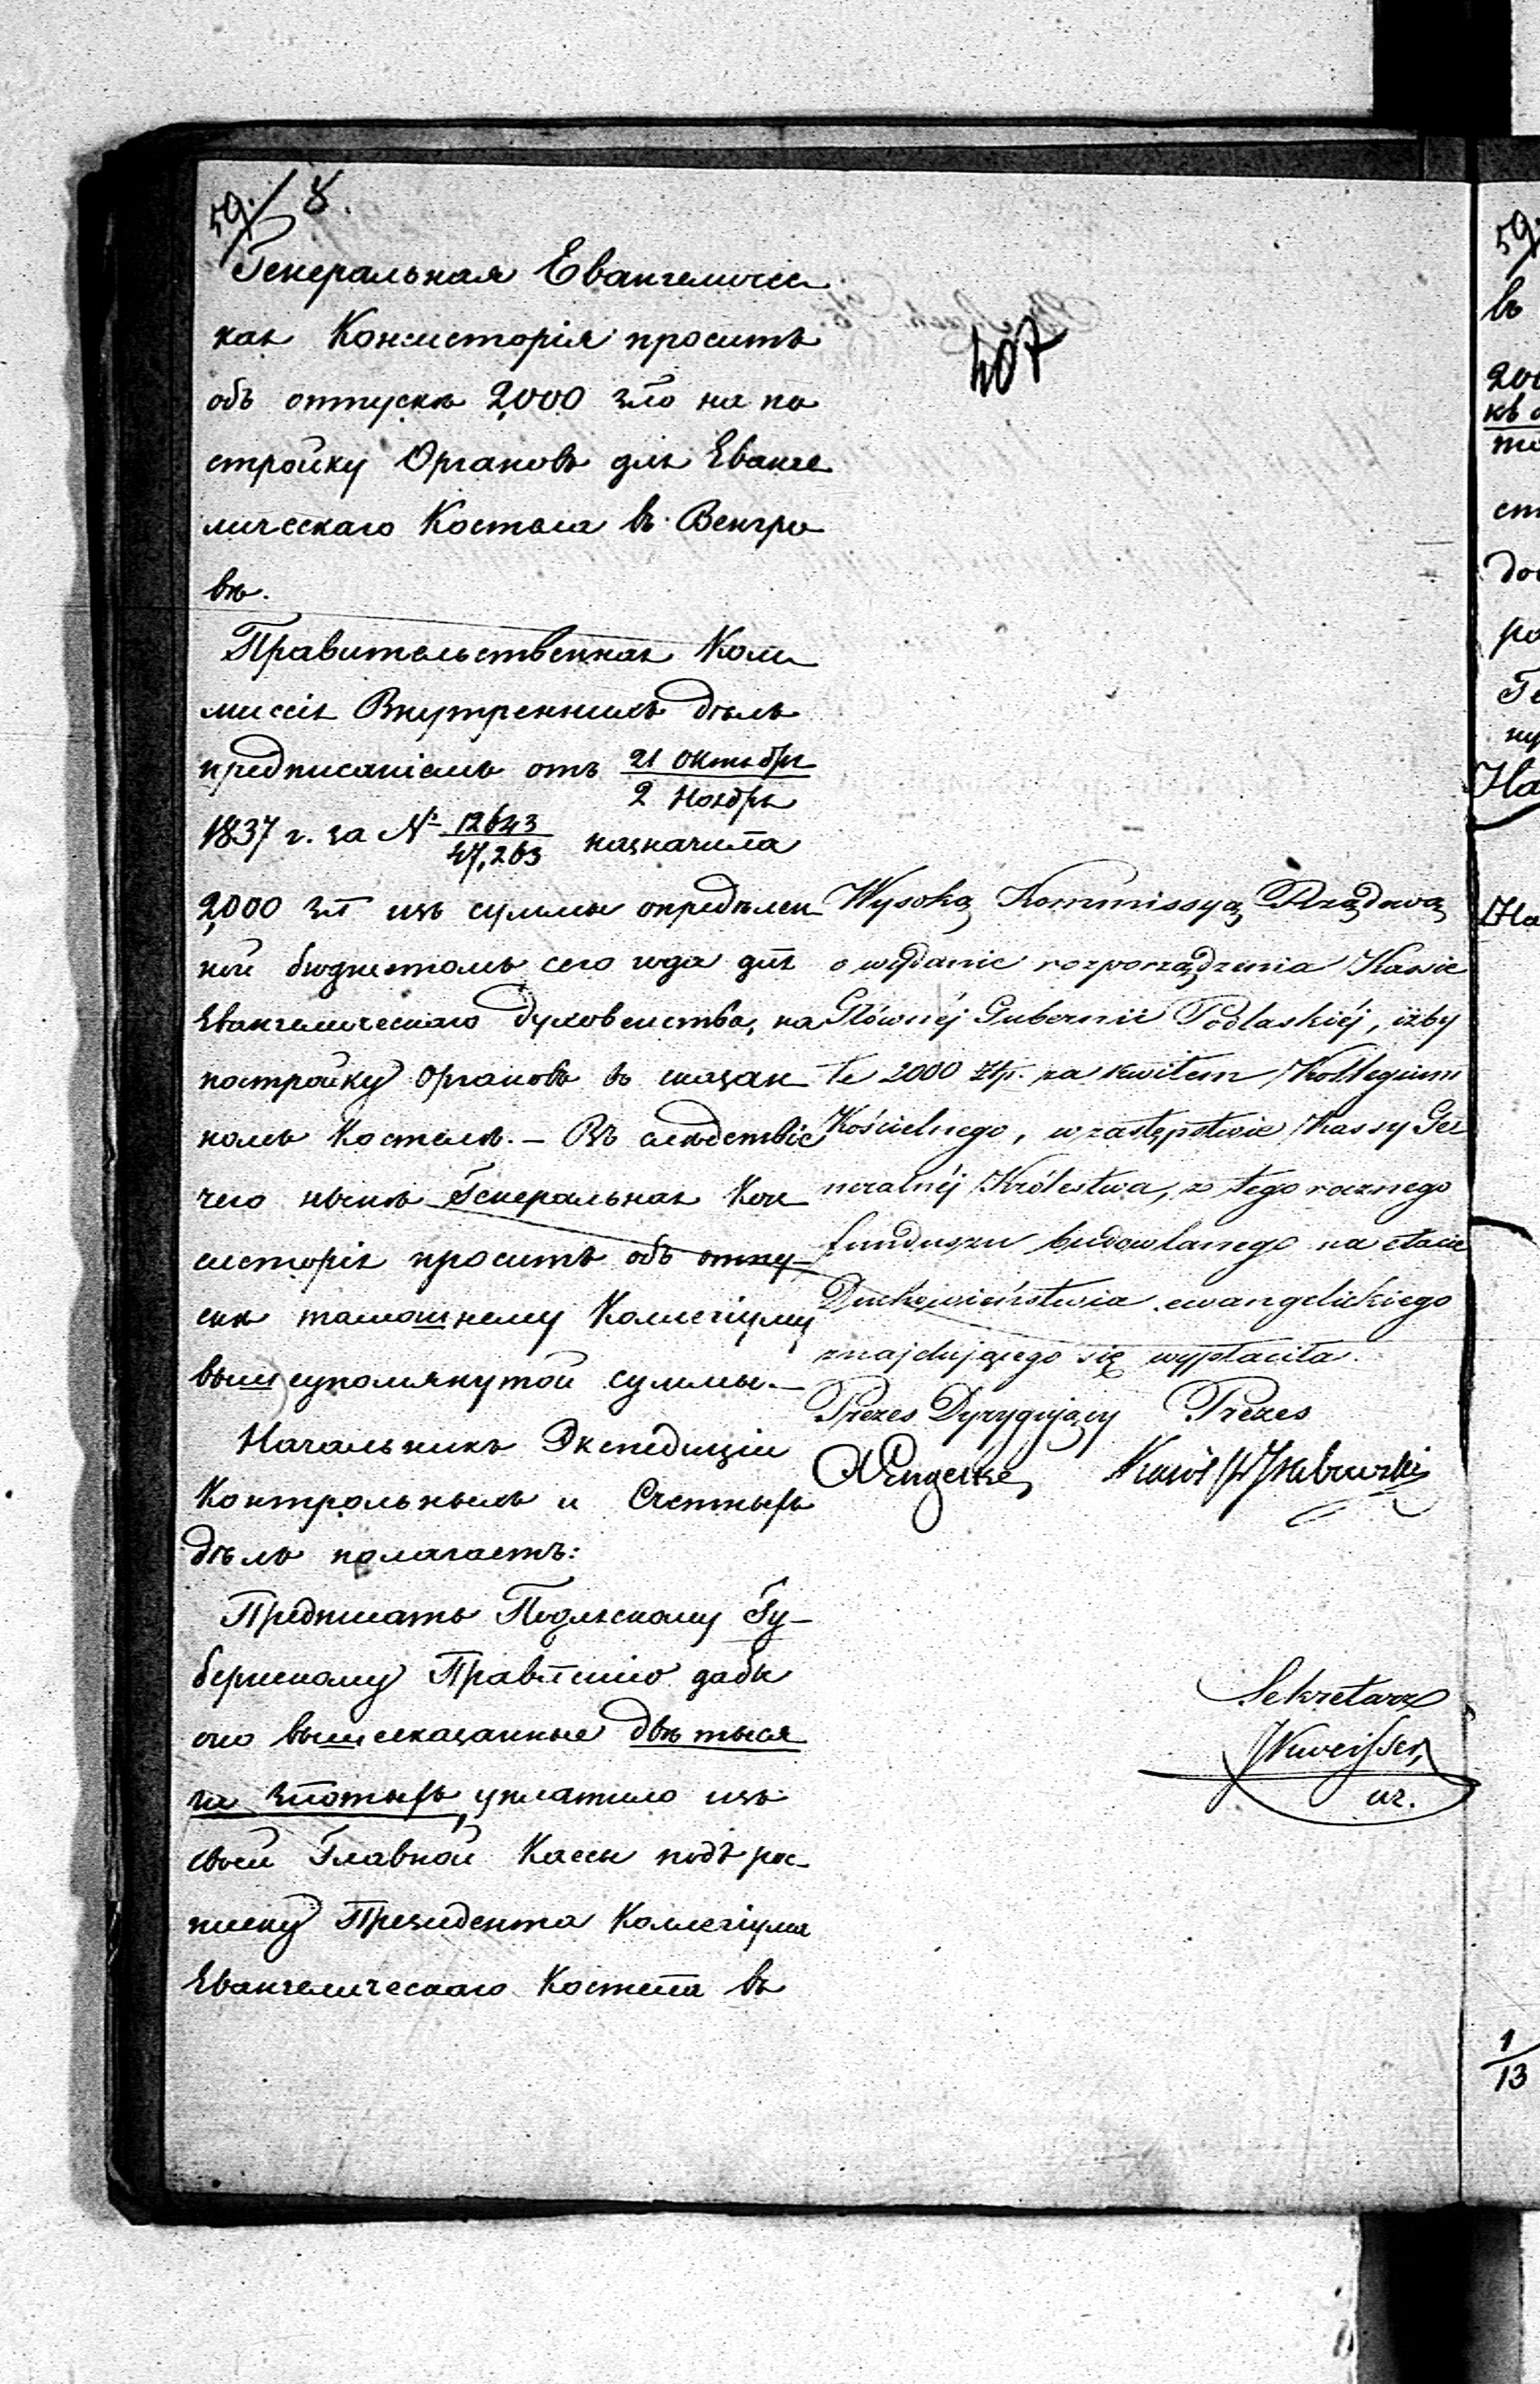 59. / 8.
407
Генеральная Евангеличес
кая Консисторія проситъ
объ отпускѣ 2,000 зло на по
стройку Органовъ для Еванге
лическаго Костела въ Венгро
вѣ.
Правительственная Ком
миссія Внутреннихъ дѣлъ
предписаніемъ отъ 21 Октября / 2 Ноября
1837 г. за № 12643 / 47,263 назначила
2,000 зл изъ суммы опредѣлен
ной бюджетомъ сего года для
Евангелическаго Духовенства, на
постройку Органовъ въ сказан
номъ Костелѣ. – Въ слѣдствіе
чего нынѣ Генеральная Кон
систорія проситъ объ отпу-
скѣ тамошнему Коллегіуму
вышеупомянутой суммы. –
Начальникъ Экспедиціи
Контрольныхъ и Счетныхъ
дѣлъ полагаетъ:
Предписать Подляскому Гу-
бернскому Правленію дабы
оно вышесказанные двѣ тыся
чи злотыхъ, уплатило изъ
своей Главной Кассы подъ рос-
писку Президента Коллегіума
Евангелическаго Костела въ
Wysoką Kommissyą Rządową
o wydanie rozporządzenia Kassie
Głównéj Gubernii Podlaskiéj, iżby
te 2000 złp. za kwitem Kollegium
Kościelnego, w zastępstwie Kassy Ge
neralnéj Królestwa, z tego rocznego
funduszu budowlanego na etacie
Duchowieństwia ewangelickiego
znajdującego się wypłaciła.
Prezes Dyrygujący Prezes
Sekretarz